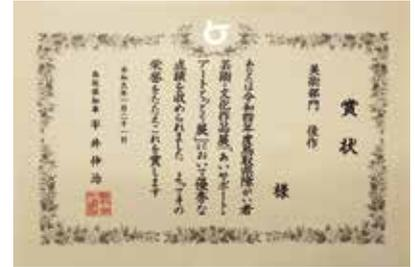 賞状
美術部門 優作
様
あなたは令和四年度鳥取県障がい者
芸術・文化作品展「あいサポート・
アートとっとり展」において優秀な
成績を収められました よってその
栄誉をたたえこれを賞します
令和五年一月二十一日
鳥取県知事 平井伸治